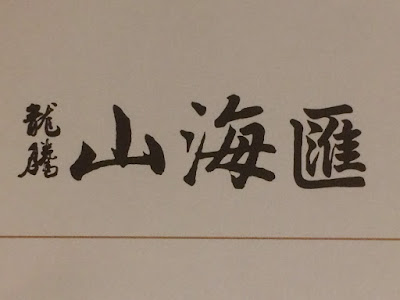 匯海山
龍騰